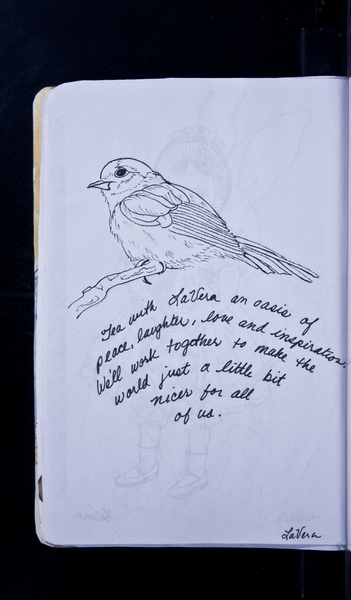 Tea with LaVera an oasis of
peace, laughter, love and inspiration.
We'll work together to make the
world just a little bit
nicer for all
of us.
LaVera